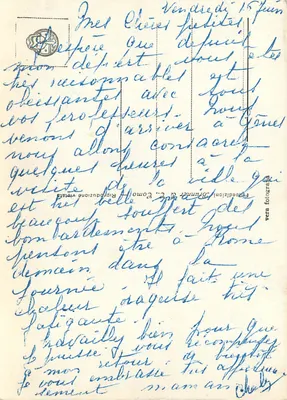 Vendredi 15 Juin
Mes Chères petites
J'espère que depuis
mon départ vous êtes
très raisonnables et
obéissantes avec vous
vos professeurs. Nous
venons d'arriver à Gênes
nous allons consacrer
quelques heures à la
visite de la ville qui
est très belle mais a
beaucoup souffert des
bombardements. Nous
pensons être à Rome
demain dans la
journée. Il fait une
chaleur orageuse très
fatigante.
Travaillez bien pour que
je puisse vous récompenser
à mon retour. à bientôt
Je vous embrasse très affectueu
sement maman